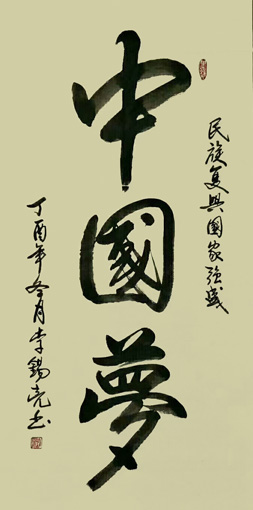 民族复興國家強盛
中國夢
丁酉年冬月李錫亮书